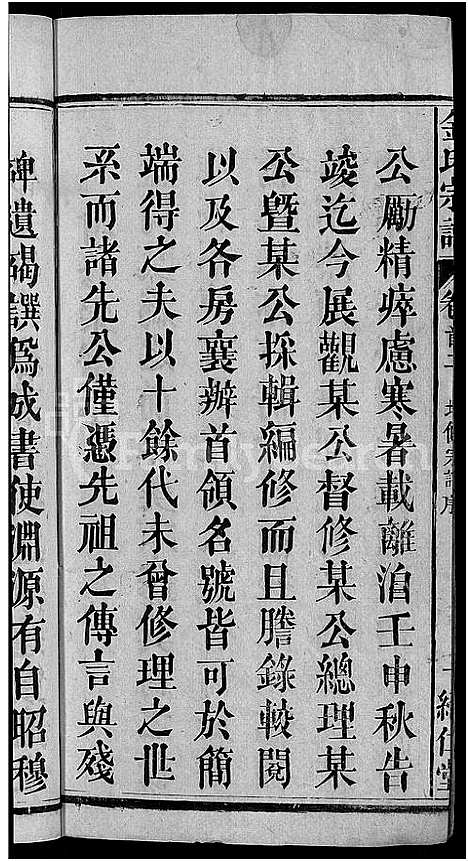 金氏宗譜 卷首二 增修宗譜序 一 純仁堂
公勵精瘁慮寒暑載離洎壬申秋告
竣迄今展觀某公督修某公總理某
公暨某公採輯編修而且謄錄較閱
以及各房襄辦首領名號皆可於簡
端得之夫以十餘代未曾修理之世
系而諸先公僅憑先祖之傳言與殘
碑遺碣譔為成書使淵源有自昭穆